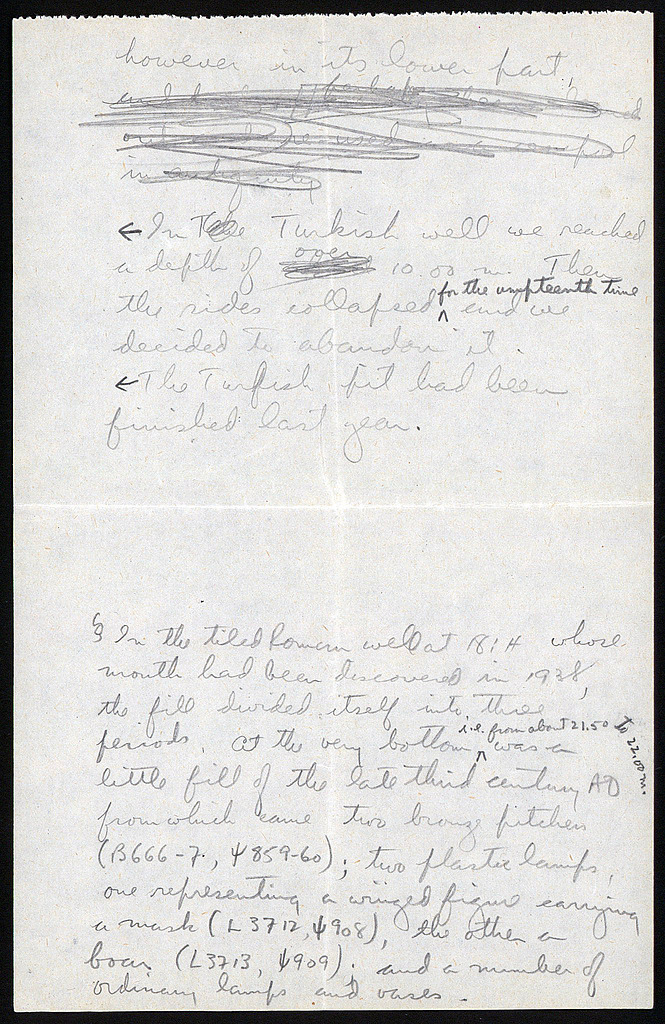 however in its lower part,
perhaps
in antiquity
← In The Turkish well we reached
a depth of over 10.00 m. Then
the sides collapsed for the umpteenth time and we
decided to abandon it.
← The Turkish pit had been
finished last year.
§ In the tiled Roman well at 18:H whose
mouth had been discovered in 1938,
the fill divided itself into three
periods. At the very bottom i.e. from about 21.50 to 22.00 m. was a
little fill of the late third century AD
from which came two bronze pitchers
(B666-7, ψ859-60); two plastic lamps,
one representing a winged figure carrying
a mask (L3712, ψ908), the other a
boar (L3713, ψ909); and a number of
ordinary lamps and vases.